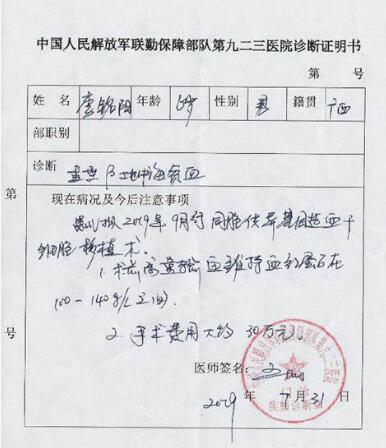 中国人民解放军联勤保障部队第九二三医院诊断证明书
第 号
姓名 唐铭阳 年龄 6岁 性别 男 籍贯 广西
部职别
诊断 重型β地中海贫血
现在病况及今后注意事项
拟2019年9月行同胞供异基因造血干
细胞移植术。
1. 术前高量输血维持血红蛋白在
100-140g/L之间。
2. 手术费用大约30万元。
医师签名:
2019年7月31日
第
号
疾病诊断章